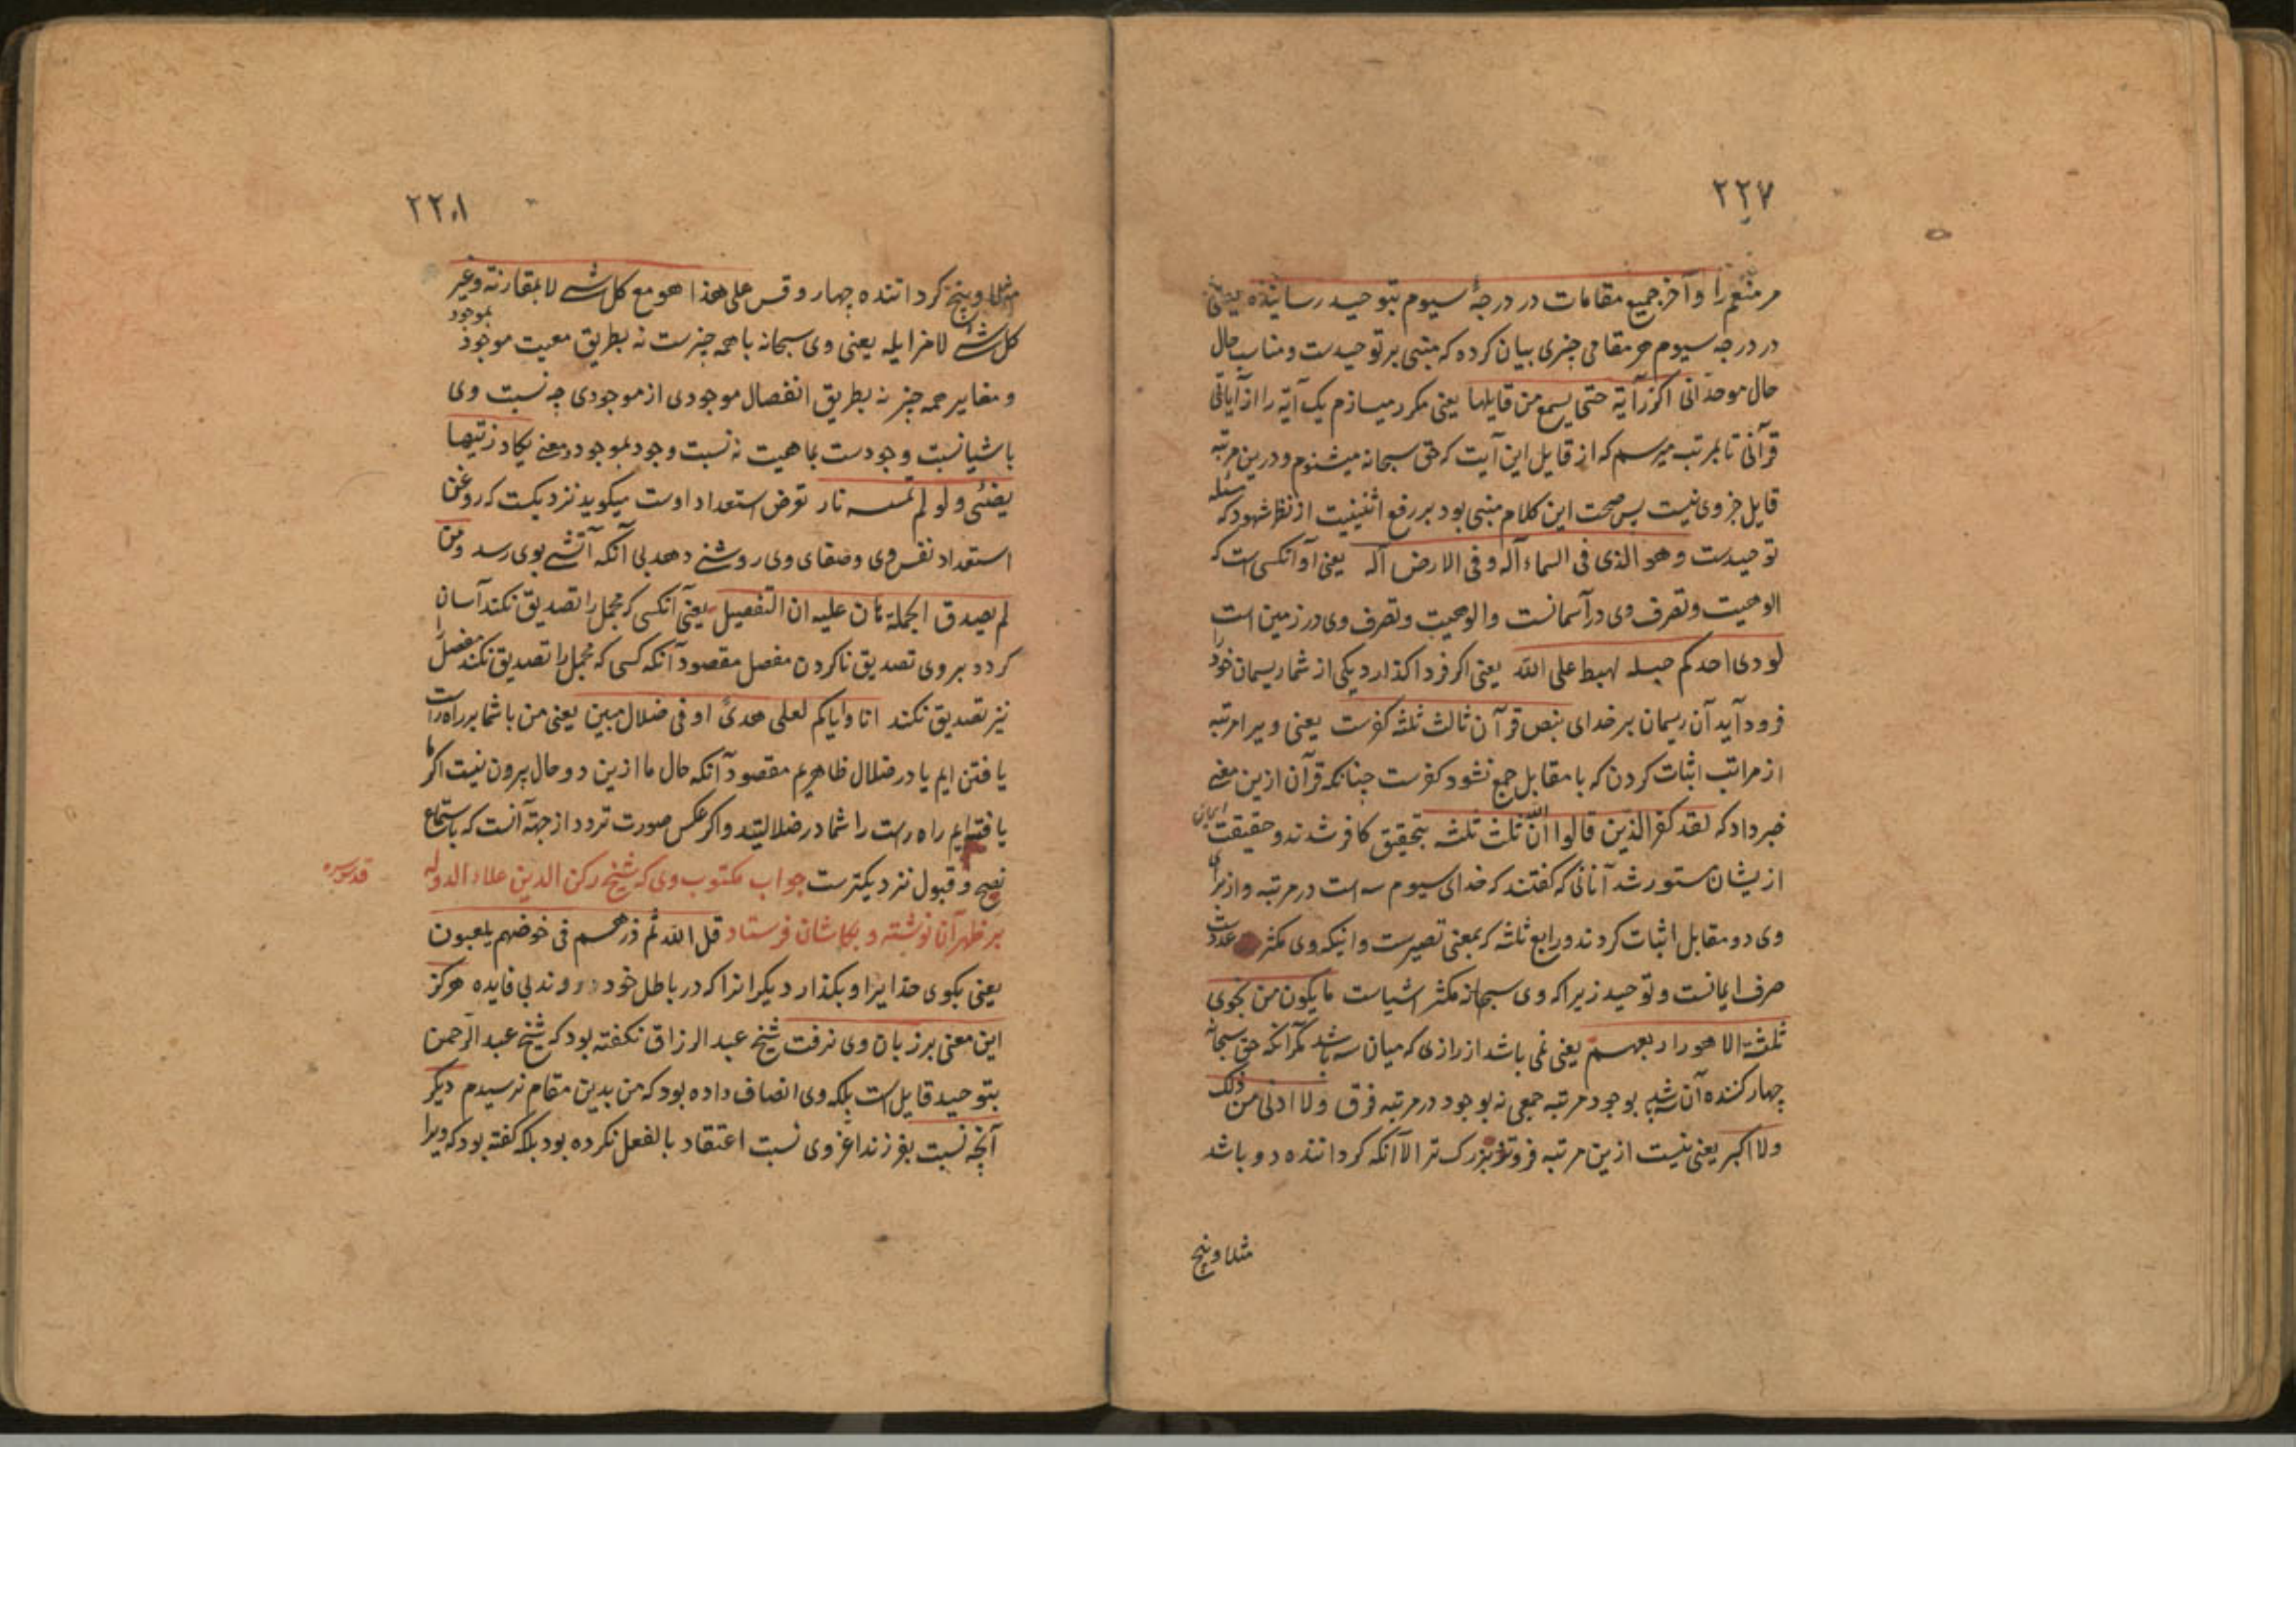 ۲۲۷
مر منعم را و آخر جمیع مقامات در درجهٔ سیوم بتوحید رسانیده یعنی
در درجه سیوم هر مقامی چیزی بیان کرده که مبنی بر توحیدست و مناسب حال
حال موحد انی اکرر آیة حتی یسمع من قایلها یعنی مکرر میسازم یک آیه را از آیاتی
قرآنی تا بمرتبه میرسم که از قایل این آیت که حق سبحانه میشنوم و درین مرتبه
قایل جز وی نیست پس صحت این کلام مبنی بود بر رفع اثنینیت از نظر شهود که مسئله
توحیدست و هو الذی فی السماء اله و فی الارض اله یعنی او آنکسی است که
الوهیت و تصرف وی در آسمانست و الوهیت و تصرف وی در زمین است
لو دلی احدکم حبله لهبط علی الله یعنی اگر فرد اکذارد یکی از شما ریسمان خود را
فرود آید آن ریسمان بر خدای بنص قرآن ثالث ثلثه کفرست یعنی ویرا مرتبه
از مراتب اثبات کردن که با مقابل جمع نشود کفرست چنانکه قرآن ازین معنی
خبر داد که لقد کفر الذین قالوا ان الله ثلث ثلثه بتحقیق کافر شدند و حقیقت ایمان
ازیشان مستور شد آنانی که گفتند که خدای سیوم سه است در مرتبه و از برای
وی دو مقابل اثبات کردند و رابع ثلثه که بمعنی تصیرست و اینکه وی مکثر عددست
صرف ایمانست و توحید زیرا که وی سبحانه مکثر اشیاست ما یکون من نجوی
ثلثة الا هو رابعهم یعنی نمی باشد از رازی که میان سه باشد مگر آنکه حق سبحانه
چهار کننده آن سه باشد بوجود مرتبه جمعی نه بوجود در مرتبه فرق ولا ادنی من ذلک
ولا اکبر یعنی نیست ازین مرتبه فروتر و بزرک تر الا آنکه کرداننده دو باشد
مثلا و پنج
۲۲۸
مثلا و پنج کرداننده چهار و قس علی هذا هو مع کل شئ لا بمقارنة و غیر
کل شئ لا بمزایله یعنی وی سبحانه با همه چیزست نه بطریق معیت موجود بموجود
و مغایر همه چیز نه بطریق انفصال موجودی از موجودی چه نسبت وی
باشیا نسبت وجودست بماهیت نه نسبت وجود بموجود و معنی یکاد زیتها
یضئی و لو لم تمسسه نار تو فرض استعداد اوست میکوید نزدیکست که روغن
استعداد نفس وی و صفای وی روشنی دهد بی آنکه آتشی بوی رسد و من
لم یصدق الجملة هان علیه ان التفصیل یعنی آنکسی که مجمل را تصدیق نکند آسان
کردد بر وی تصدیق ناکردن مفصل مقصود آنکه کسی که مجمل را تصدیق نکند مفصل را
نیز تصدیق نکند انا و ایاکم لعلی هدیً او فی ضلال مبین یعنی من با شما بر راه راست
یافتن ایم یا در ضلال ظاهریم مقصود آنکه حال ما ازین دو حال بیرون نیست اکر ما
یافته ایم راه راست را شما در ضلالتید و اکر عکس صورت تردد از جهة آنست که باستماع
نصح و قبول نزدیکترست جواب مکتوب وی که شیخ رکن الدین علاء الدوله قدس سره
بر ظهر آن نوشته و بکاشان فرستاد قل الله ثم ذرهم فی خوضهم یلعبون
یعنی بکوی خدایرا و بکذار دیکرانرا که در باطل خود روند بی فایده هرکز
این معنی بر زبان وی نرفت شیخ عبد الرزاق نکفته بود که شیخ عبد الرحمن
بتوحید قایل است بلکه وی انصاف داده بود که من بدین مقام نرسیدم دیکر
آنچه نسبت بفرزند اعز وی نسبت اعتقاد بالفعل نکرده بود بلکه کفته بود که ویرا